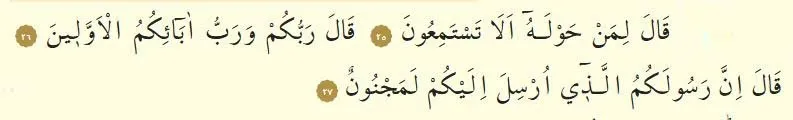 قَالَ لِمَنْ حَوْلَـهُٓ اَلَا تَسْتَمِعُونَ ﴿٢٥﴾ قَالَ رَبُّكُمْ وَرَبُّ اٰبَٓائِكُمُ الْاَوَّل۪ينَ ﴿٢٦﴾
قَالَ اِنَّ رَسُولَكُمُ الَّـذ۪ٓي اُرْسِلَ اِلَيْكُمْ لَمَجْنُونٌ ﴿٢٧﴾